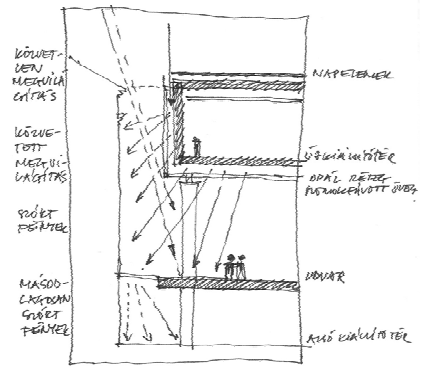 KÖZVET-
LEN
MEGVILÁ-
GÍTÁS
KÖZVE-
TETT
MEGVI-
LÁGÍTÁS
SZÓRT
FÉNYEK
MÁSOD-
LAGOSAN
SZÓRT
FÉNYEK
NAPELEMEK
ÚJ KIÁLLÍTÓTÉR
OPÁL RÉTEG
ÜVEG
UDVAR
ALSÓ KIÁLLÍTÓTÉR